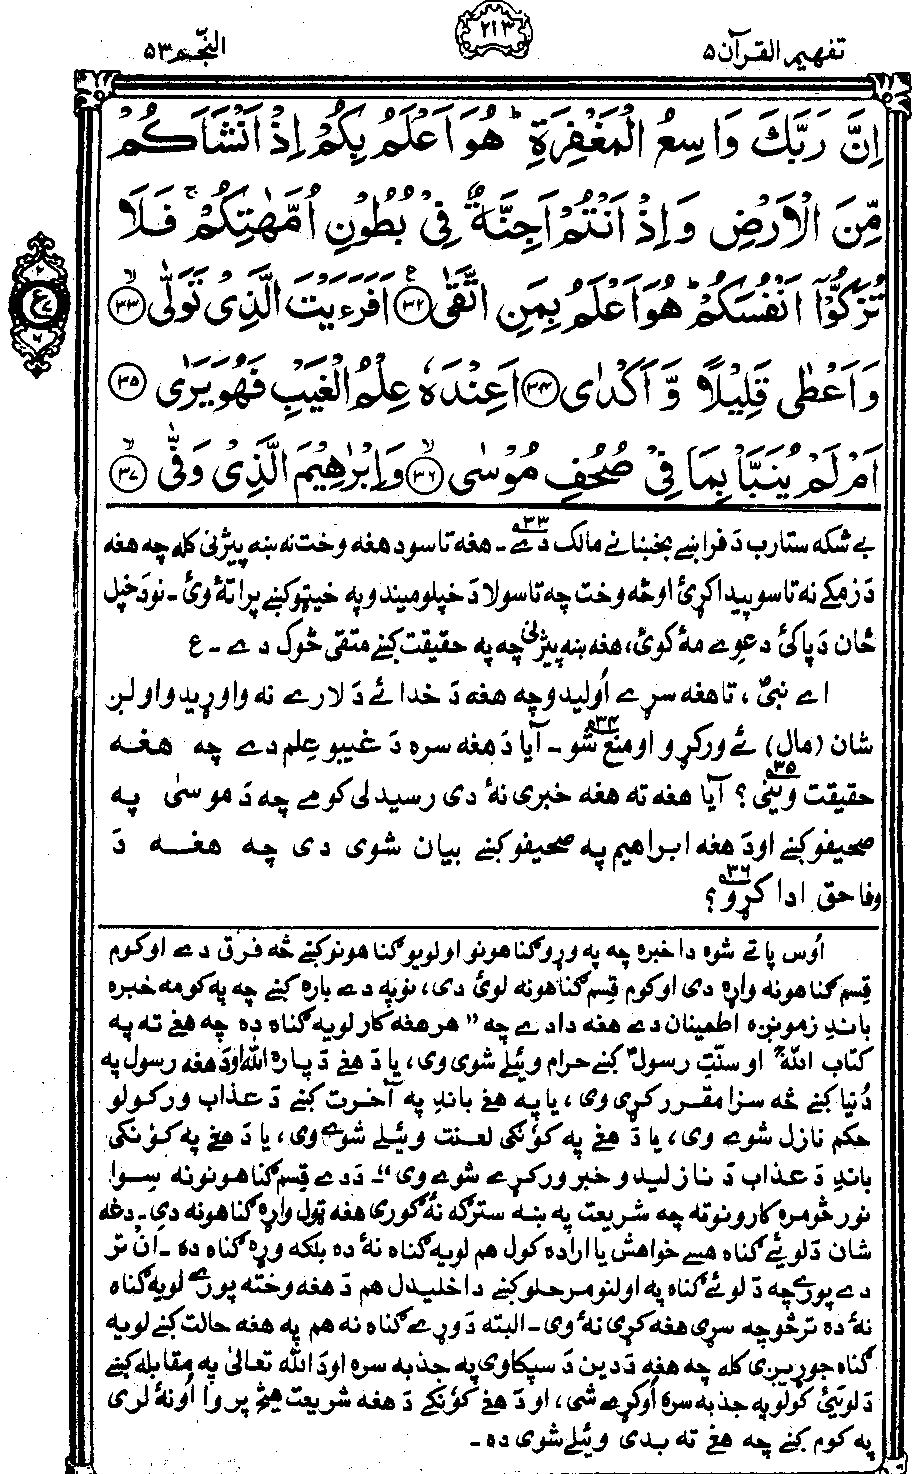 تفهیم القرآن ۵
۲۱۳
النّجم ۵۳
اِنَّ رَبَّكَ وَاسِعُ الْمَغْفِرَةِ ؕ هُوَ اَعْلَمُ بِكُمْ اِذْ اَنْشَاَكُمْ
مِّنَ الْاَرْضِ وَاِذْ اَنْتُمْ اَجِنَّةٌ فِیْ بُطُوْنِ اُمَّهٰتِكُمْ ۚ فَلَا
تُزَكُّوْۤا اَنْفُسَكُمْ ؕ هُوَ اَعْلَمُ بِمَنِ اتَّقٰی ۳۲ اَفَرَءَیْتَ الَّذِیْ تَوَلّٰی ۳۳
وَاَعْطٰی قَلِیْلًا وَّاَكْدٰی ۳۴ اَعِنْدَهٗ عِلْمُ الْغَیْبِ فَهُوَ یَرٰی ۳۵
اَمْ لَمْ یُنَبَّاْ بِمَا فِیْ صُحُفِ مُوْسٰی ۳۶ وَاِبْرٰهِیْمَ الَّذِیْ وَفّٰی ۳۷
بے شکه ستا رب د فراخے بخښنانے مالک دے ۳۳ـ هغه تاسو د هغه وخت نه ښه پیژنی کله چه هغه
د زمکے نه تاسو پیدا کړئ او څه وخت چه تاسو لا د خپلو میندو په خیټو کښے پراتۀ وئ ـ نو د خپل
ځان د پاکئ دعوے مۀ کوئ، هغه ښه پیژنی چه په حقیقت کښے متقی څوک دے ـ ع
اے نبیؐ ، تا هغه سړے اُولیدو چه هغه د خدائے د لارے نه واوړیدو او لږ
شان (مال) ئے ورکړو او منع شو ۳۴ـ آیا د هغه سره د غیبو عِلم دے چه هغه
حقیقت وینی ۳۵؟ آیا هغه ته هغه خبری نۀ دی رسیدلی کومے چه د موسیٰ په
صحیفو کښے او د هغه ابراهیم په صحیفو کښے بیان شوی دی چه هغه د
وفا حق ادا کړو ۳۶؟
اُوس پاتے شوه دا خبره چه په وړو ګناهونو او لویو ګناهونو کښے څه فرق دے او کوم
قسم ګناهونه واړه دی او کوم قسم ګناهونه لوئ دی، نو په دے باره کښے چه په کومه خبره
باندِ زمونږه اطمینان دے هغه دا دے چه " هر هغه کار لویه ګناه ده چه هغے ته په
کتاب اللهؐ او سنّتِ رسولؐ کښے حرام وئیلے شوی وی، یا د هغے د پاره الله او د هغه رسول په
دُنیا کښے څه سزا مقرر کړی وی ، یا په هغے باندِ په آخرت کښے د عذاب ورکولو
حکم نازل شوے وی، یا د هغے په کوُنکی لعنت وئیلے شوے وی، یا د هغے په کوُنکی
باندِ د عذاب د نازلیدو خبر ورکړے شوے وی" ـ د دے قسم ګناهونونه سوا
نور څومره کارونو ته چه شریعت په ښه سترګه نۀ ګوری هغه ټول واړه ګناهونه دی ـ دغه
شان د لوئے ګناه هسے خواهش یا اراده کول هم لویه ګناه نۀ ده بلکه وړه ګناه ده ـ ان تر
دے پورے چه د لوئے ګناه په اولنو مرحلو کښے داخلیدل هم د هغه وخته پورے لویه ګناه
نۀ ده تر څو چه سړی هغه کړی نۀ وی ـ البته د وړے ګناه نه هم په هغه حالت کښے لویه
ګناه جوړیږی کله چه هغه د دین د سپکاوی په جذبه سره او د الله تعالیٰ په مقابله کښے
د لوئی کولو په جذبه سره اُوکړے شی، او د هغے کوُنکے د هغه شریعت هیڅ پروا اُونۀ لری
په کوم کښے چه هغے ته بدی وئیلے شوی ده ـ